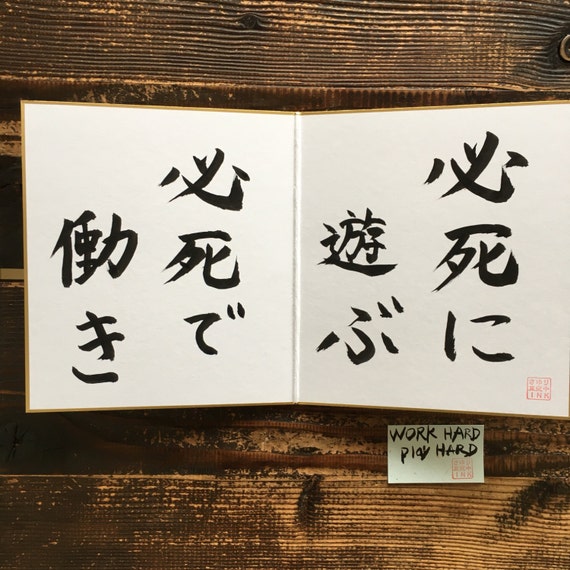 必死に
遊ぶ
必死で
働き
INK
WORK HARD
Play HARD